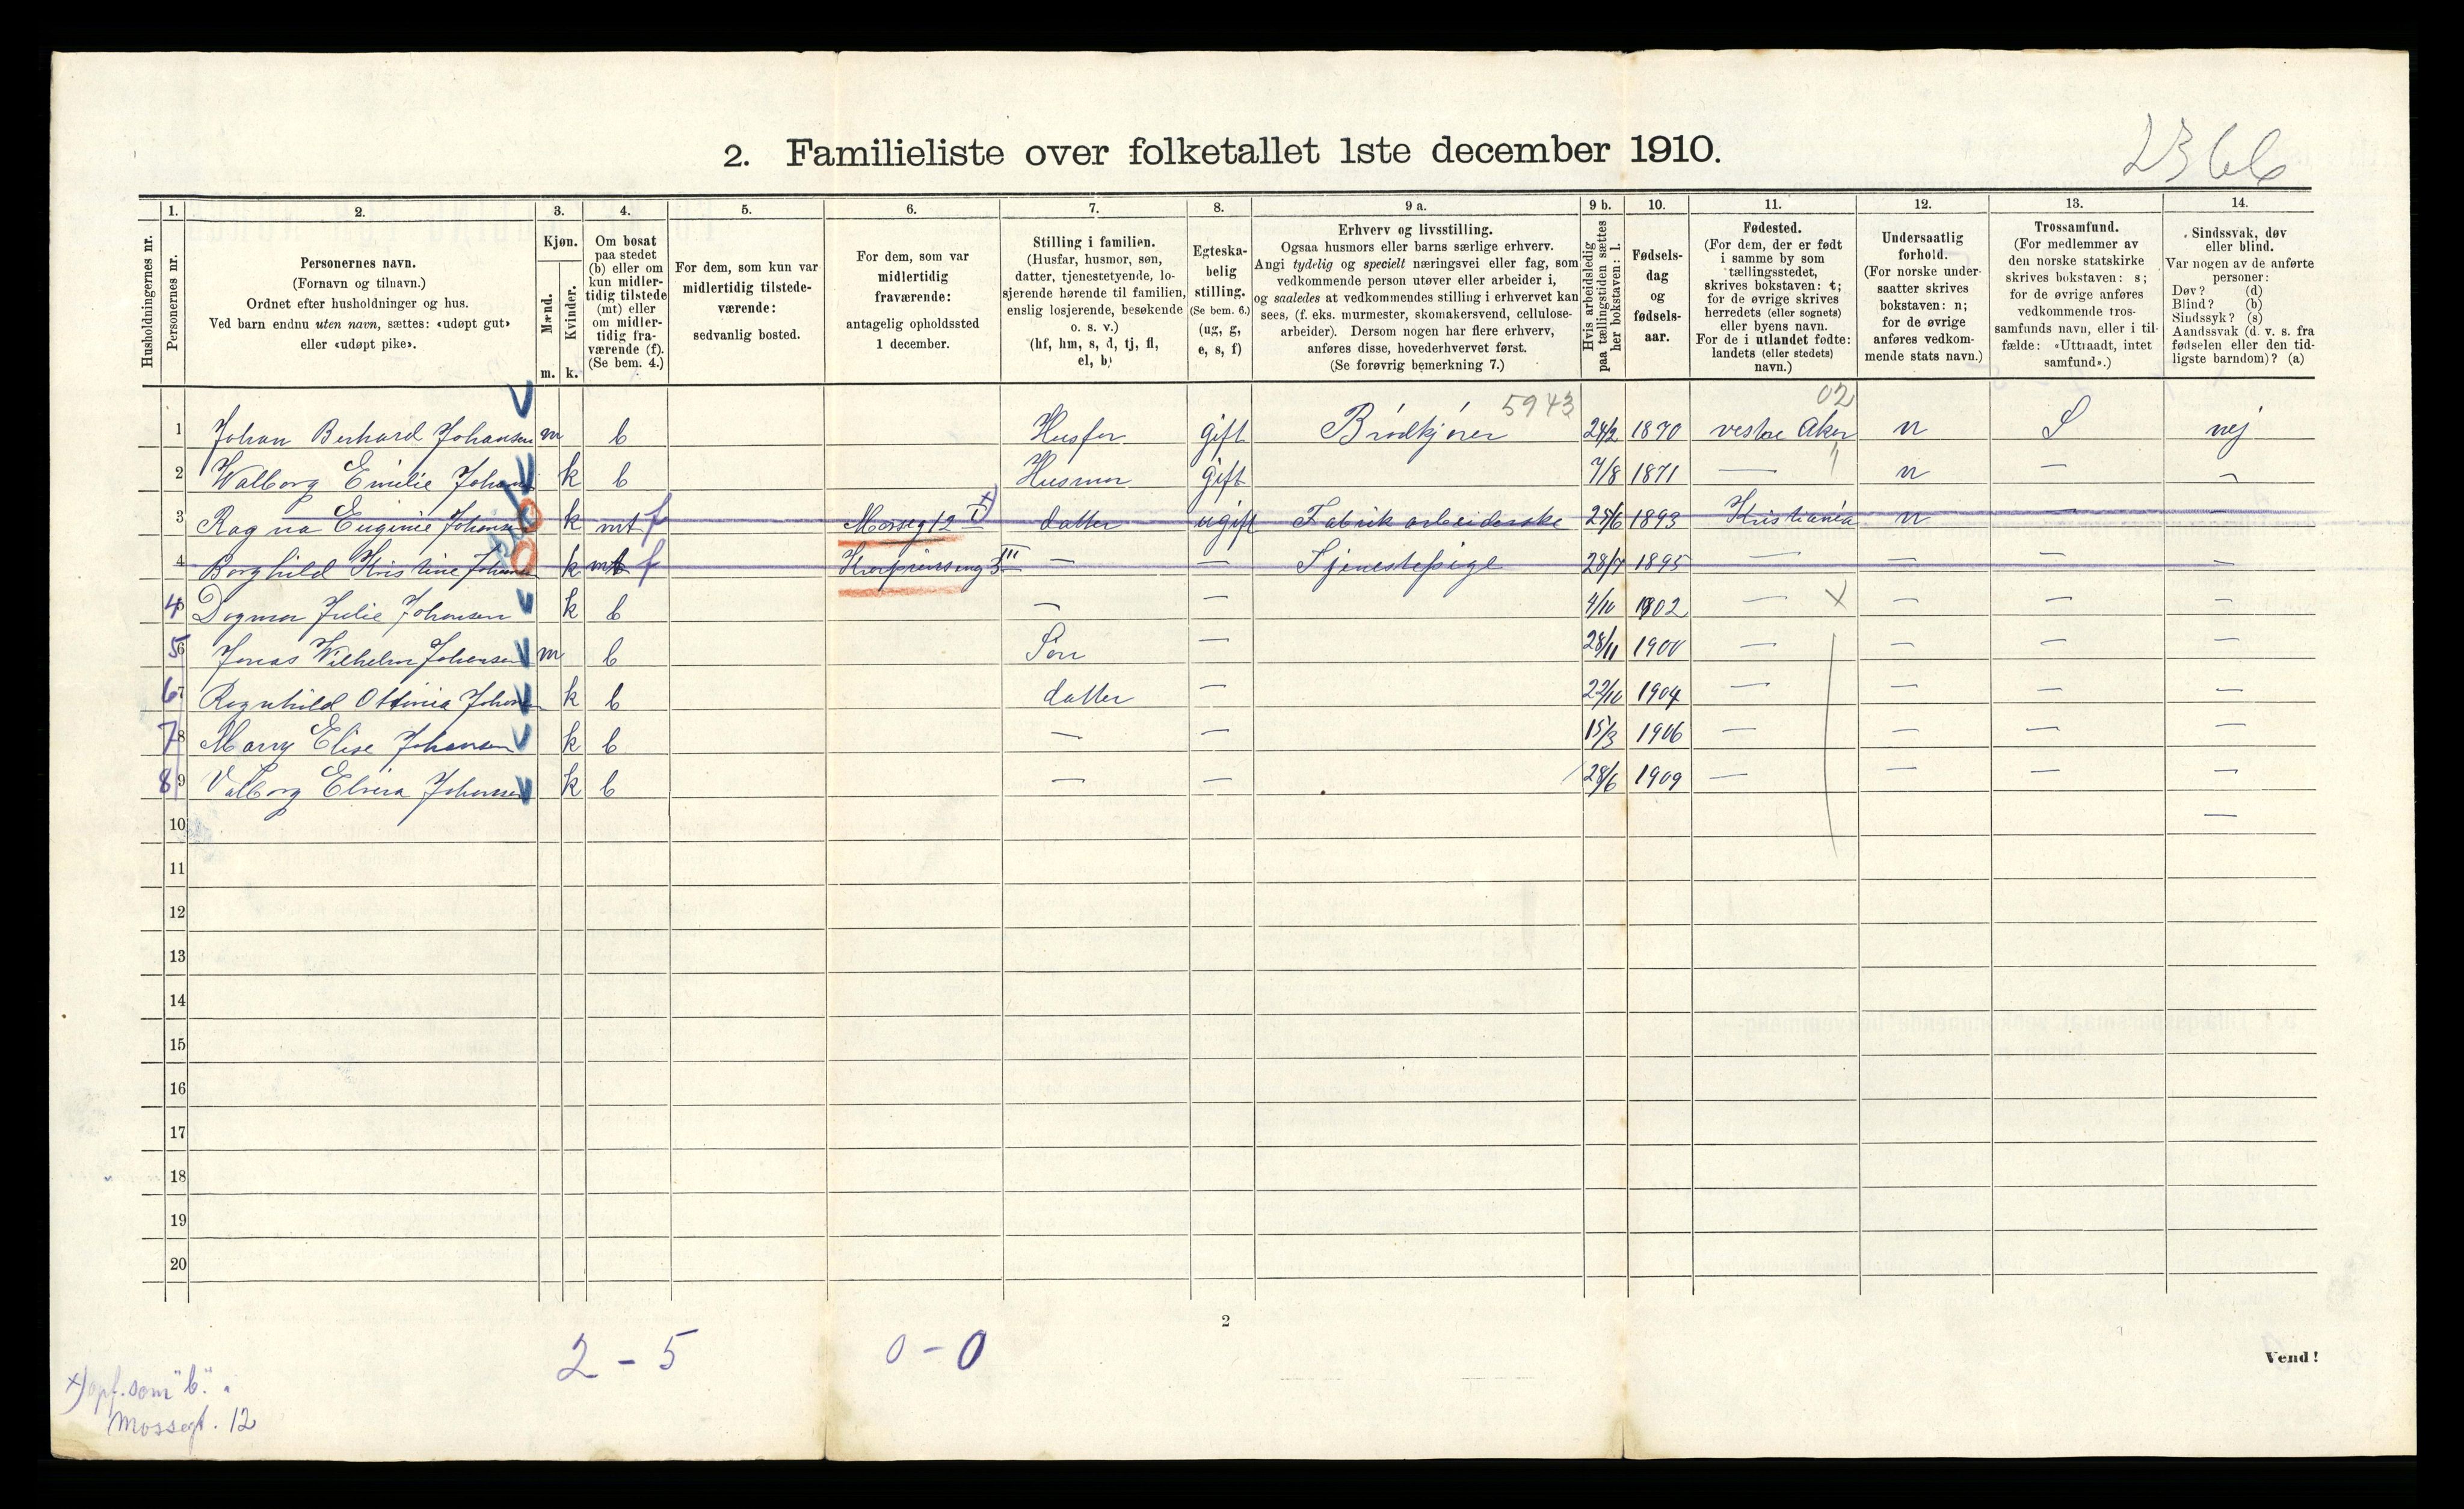 2366
2. Familieliste over folketallet 1ste december 1910.
Husholdningernes nr.
1. Personernes nr.
2. Personernes navn. (Fornavn og tilnavn.) Ordnet efter husholdninger og hus. Ved barn endnu uten navn, sættes: «udøpt gut» eller «udøpt pike».
3. Kjøn. Mænd. m. Kvinder. k.
4. Om bosat paa stedet (b) eller om kun midlertidig tilstede (mt) eller om midlertidig fraværende (f). (Se bem. 4.)
5. For dem, som kun var midlertidig tilstedeværende: sedvanlig bosted.
6. For dem, som var midlertidig fraværende: antagelig opholdssted 1 december.
7. Stilling i familien. (Husfar, husmor, søn, datter, tjenestetyende, losjerende hørende til familien, enslig losjerende, besøkende o. s. v.) (hf, hm, s, d, tj, fl, el, b)
8. Egteskabelig stilling. (Se bem. 6.) (ug, g, e, s, f)
9 a. Erhverv og livsstilling. Ogsaa husmors eller barns særlige erhverv. Angi tydelig og specielt næringsvei eller fag, som vedkommende person utøver eller arbeider i, og saaledes at vedkommendes stilling i erhvervet kan sees, (f. eks. murmester, skomakersvend, cellulosearbeider). Dersom nogen har flere erhverv, anføres disse, hovederhvervet først. (Se forøvrig bemerkning 7.)
9 b. Hvis arbeidsledig paa tællingstiden sættes her bokstaven: l.
10. Fødselsdag og fødselsaar.
11. Fødested. (For dem, der er født i samme by som tællingsstedet, skrives bokstaven: t; for de øvrige skrives herredets (eller sognets) eller byens navn. For de i utlandet fødte: landets (eller stedets) navn.)
12. Undersaatlig forhold. (For norske undersaatter skrives bokstaven: n; for de øvrige anføres vedkommende stats navn.)
13. Trossamfund. (For medlemmer av den norske statskirke skrives bokstaven: s; for de øvrige anføres vedkommende trossamfunds navn, eller i tilfælde: «Uttraadt, intet samfund».)
14. Sindssvak, døv eller blind. Var nogen av de anførte personer: Døv? (d) Blind? (b) Sindssyk? (s) Aandssvak (d. v. s. fra fødselen eller den tidligste barndom)? (a)
5943 02
1 Johan Berhard Johansen m b Husfar gift Brödkjörer 24/2 1870 vestre Aker n S nej
2 Walborg Emilie Johans k b Husmor gift 7/8 1871 — " n — —
3 Ragna Euginie Johansen k mt f Mosseg 12 I x) datter ugift Fabrik arbeiderske 25/6 1893 Kristiania n — —
4 Borghild Kristine Johansen k mt f 3 III — — Tjenestepige 28/7 1895 — — — —
4 5 Dagmar Julie Johansen k b — — 4/10 1902 — x — — —
5 6 Jonas Wilhelm Johansen m b Sön — 28/11 1900 — — — —
6 7 Ragnhild Ottinia Johansen k b datter — 22/10 1904 — — — —
7 8 Marry Elise Johansen k b — — 15/3 1906 — — — —
8 9 Valborg Elvira Johansen k b — — 28/6 1909 — — — —
10 —
11
12
13
14
15
16
17
18
19
20
2
2 - 5 0 - 0
Vend!
x) opf. som "b".
Mossegt. 12